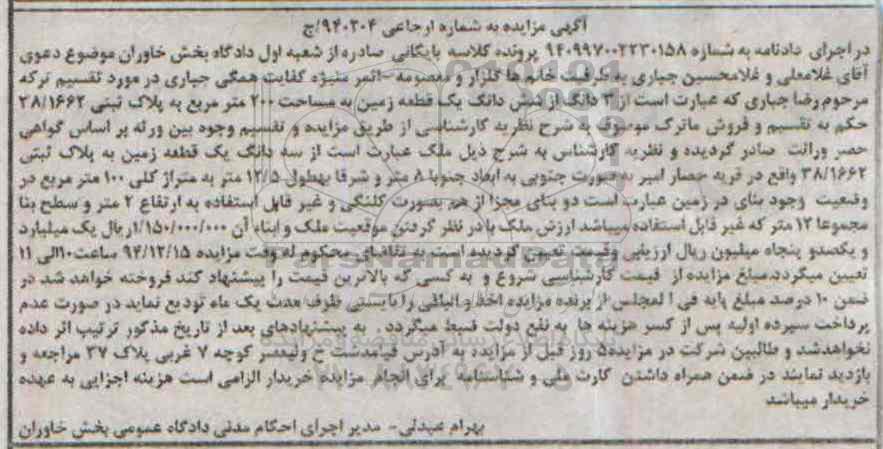 آگهی مزایده به شماره ارجاعی ۹۴۰۳۰۴/ج
در اجرای دادنامه به شماره ۹۴۰۹۹۷۰۰۲۲۳۰۱۵۸ پرونده کلاسه بایگانی صادره از شعبه اول دادگاه بخش خاوران موضوع دعوی
آقای غلامعلی و غلامحسین جباری به طرفیت خانم ها گلزار و معصومه -اثمر منیژه کفایت همگی جباری در مورد تقسیم ترکه
مرحوم رضا جباری که عبارت است از ۳ دانگ از شش دانگ یک قطعه زمین به مساحت ۲۰۰ متر مربع به پلاک ثبتی ۳۸/۱۶۶۲
حکم به تقسیم و فروش ماترک موصوف به شرح نظریه کارشناسی از طریق مزایده و تقسیم وجوه بین ورثه بر اساس گواهی
حصر وراثت صادر گردیده و نظریه کارشناس به شرح ذیل ملک عبارت است از سه دانگ یک قطعه زمین به پلاک ثبتی
۳۸/۱۶۶۲ واقع در قریه حصار امیر به صورت جنوبی به ابعاد جنوبا ۸ متر و شرقا بهطول ۱۲/۵ متر به متراژ کلی ۱۰۰ متر مربع در
وضعیت وجود بنای در زمین عبارت است دو بنای مجزا از هم بصورت کلنگی و غیر قابل استفاده به ارتفاع ۲ متر و سطح بنا
مجموعا ۱۲ متر که غیر قابل استفاده میباشد ارزش ملک با در نظر گرفتن موقعیت ملک و ابناء آن ۱/۱۵۰/۰۰۰/۰۰۰ریال یک میلیارد
و یکصدو پنجاه میلیون ریال ارزیابی وقیمت تعیین گردیده است به تقاضای محکوم له وقت مزایده ۹۴/۱۲/۱۵ ساعت۱۰الی ۱۱
تعیین میگردد.مبلغ مزایده از قیمت کارشناسی شروع و به کسی که بالاترین قیمت را پیشنهاد کند فروخته خواهد شد در
ضمن ۱۰ درصد مبلغ پایه فی ا لمجلس از برنده مزایده اخذ و الباقی را بایستی ظرف مدت یک ماه تودیع نماید در صورت عدم
پرداخت سپرده اولیه پس از کسر هزینه ها به نفع دولت ضبط میگردد . به پیشنهادهای بعد از تاریخ مذکور ترتیب اثر داده
نخواهدشد و طالبین شرکت در مزایده۵ روز قبل از مزایده به آدرس قیامدشت خ ولیعصر کوچه ۷ غربی پلاک ۳۷ مراجعه و
بازدید نمایند در ضمن همراه داشتن کارت ملی و شناسنامه برای انجام مزایده خریدار الزامی است هزینه اجرایی به عهده
خریدار میباشد
بهرام عبدلی- مدیر اجرای احکام مدنی دادگاه عمومی بخش خاوران